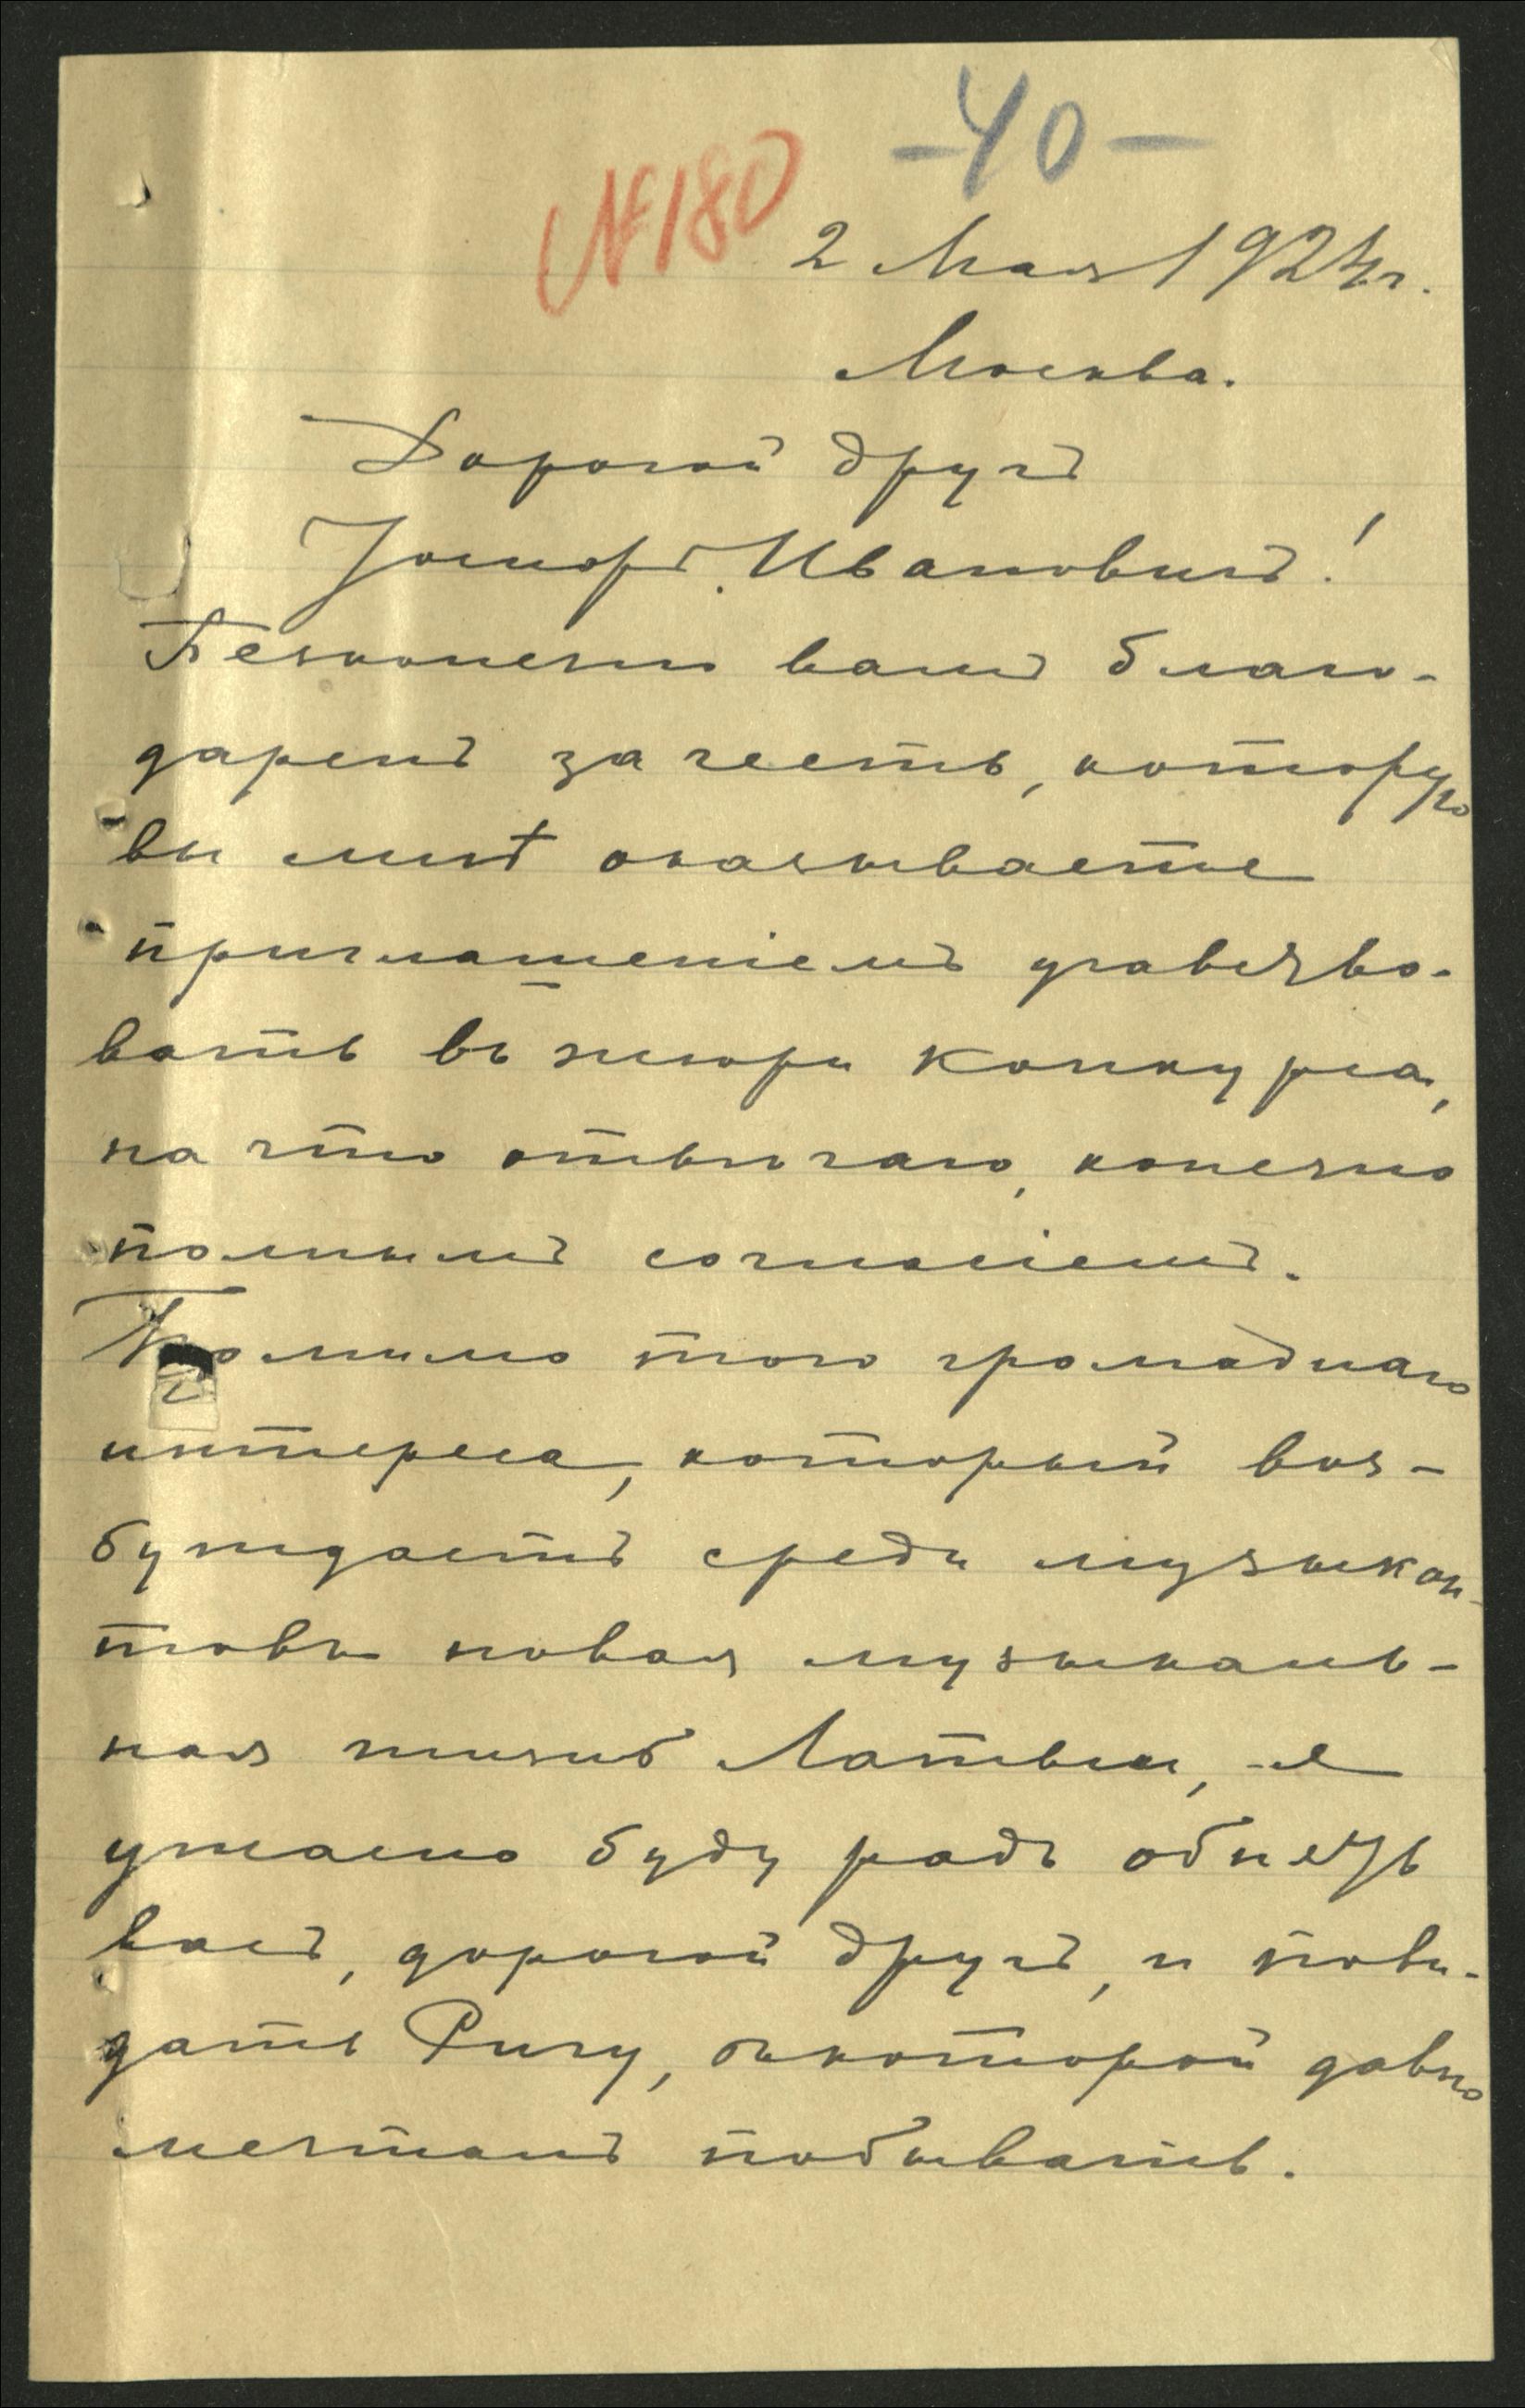 -40-
№180
2 Мая 1924 г.
Москва.
Дорогой другъ
Іосифъ Ивановичъ!
Безконечно вамъ благо-
даренъ за честь, которую
вы мнѣ оказываете
приглашеніемъ учавство-
вать въ жюри конкурса,
на что отвѣчаю, конечно
полнымъ согласіемъ.
Помимо того громаднаго
интереса, который воз-
буждаетъ среди музыкан-
товъ новая музыкаль-
ная жизнь Латвіи, я
ужасно буду радъ обнять
васъ, дорогой другъ, и пови-
дать Ригу, въ которой давно
мечталъ побывать.